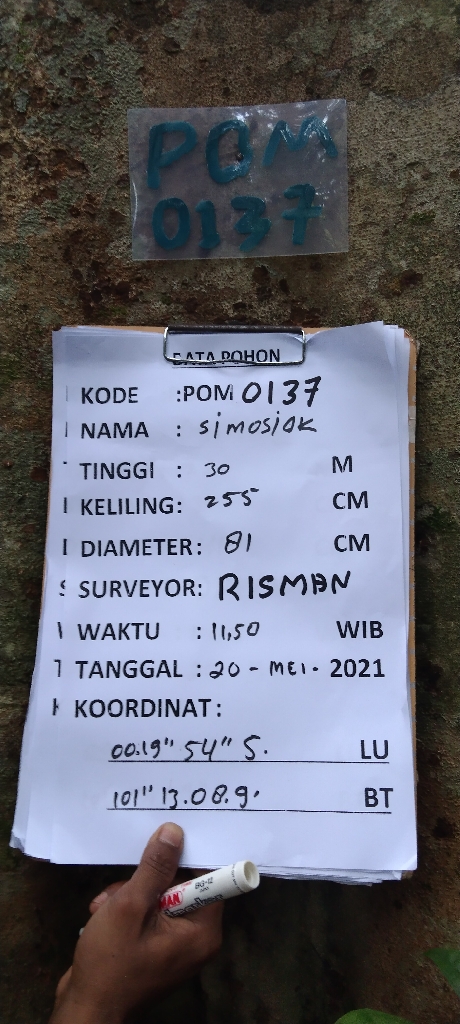 POM
0137
DATA POHON
KODE :POM 0137
NAMA : simosiak
TINGGI : 30 M
KELILING: 255 CM
DIAMETER: 81 CM
SURVEYOR: RISMAN
WAKTU : 11,50 WIB
TANGGAL : 20 - MEI - 2021
KOORDINAT:
00.19" 54" 5. LU
101" 13.08.9. BT
MAN
BG-12